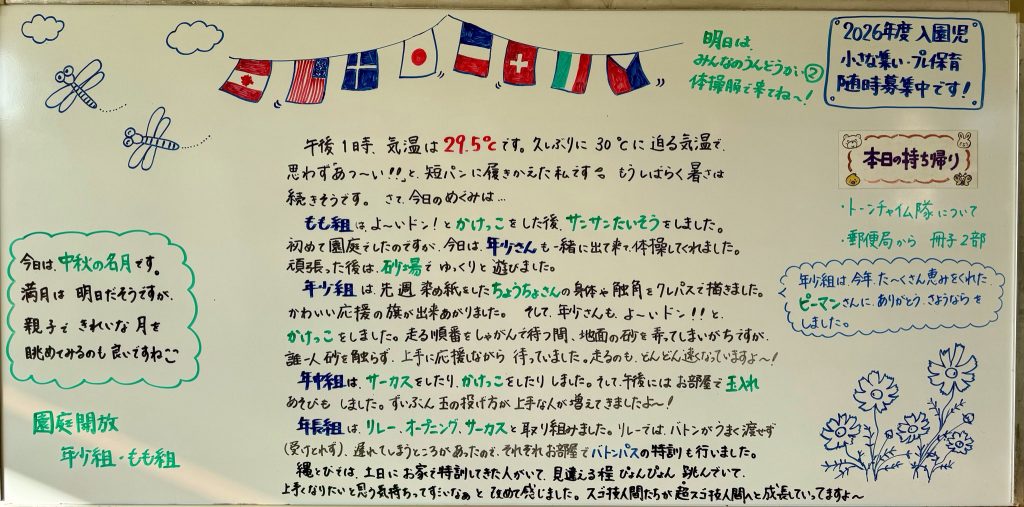 明日は、
みんなのうんどうかい②
体操服で来てね〜!
2026年度 入園児
小さな集い・プレ保育
随時募集中です!
午後1時、気温は29.5℃です。久しぶりに30℃に迫る気温で、
思わず“あつ〜い!!”と、短パンに履きかえた私です。もうしばらく暑さは
続きそうです。さて、今日のめぐみは…
もも組は、よ〜いドン!とかけっこをした後、サンサンたいそうをしました。
初めて園庭でしたのですが、今日は、年少さんも一緒に出て来て、体操してくれました。
頑張った後は、砂場でゆっくりと遊びました。
年少組は、先週染め紙をしたちょうちょさんの身体や触角をクレパスで描きました。
かわいい応援の旗が出来あがりました。そして、年少さんも、よ〜いドン!!と、
かけっこをしました。走る順番をしゃがんで待つ間、地面の砂を弄ってしまいがちですが、
誰一人砂を触らず、上手に応援しながら待っていました。走るのも、どんどん速くなっていますよ〜!
年中組は、サーカスをしたり、かけっこをしたりしました。そして、午後にはお部屋で玉入れ
あそびもしました。ずいぶん玉の投げ方が上手な人が増えてきましたよ〜!
年長組は、リレー、オープニング、サーカスと取り組みました。リレーでは、バトンがうまく渡せず
(受けとれず)、遅れてしまうところがあったので、それぞれお部屋でバトンパスの特訓も行いました。
縄とびでは、土日にお家で特訓してきた人がいて、見違える程ぴょんぴょん跳んでいて、
上手くなりたいと思う気持ちってすごいなぁと改めて感じました。スゴ技人間たちが超スゴ技人間へと成長していってますよ〜
今日は、中秋の名月です。
満月は明日だそうですが、
親子できれいな月を
眺めてみるのも良いですね
園庭開放
年少組・もも組
本日の持ち帰り
・トーンチャイム隊について
・郵便局から 冊子2部
年少組は、今年、た〜くさん恵みをくれた
ピーマンさんに、ありがとう、さようならを
しました。